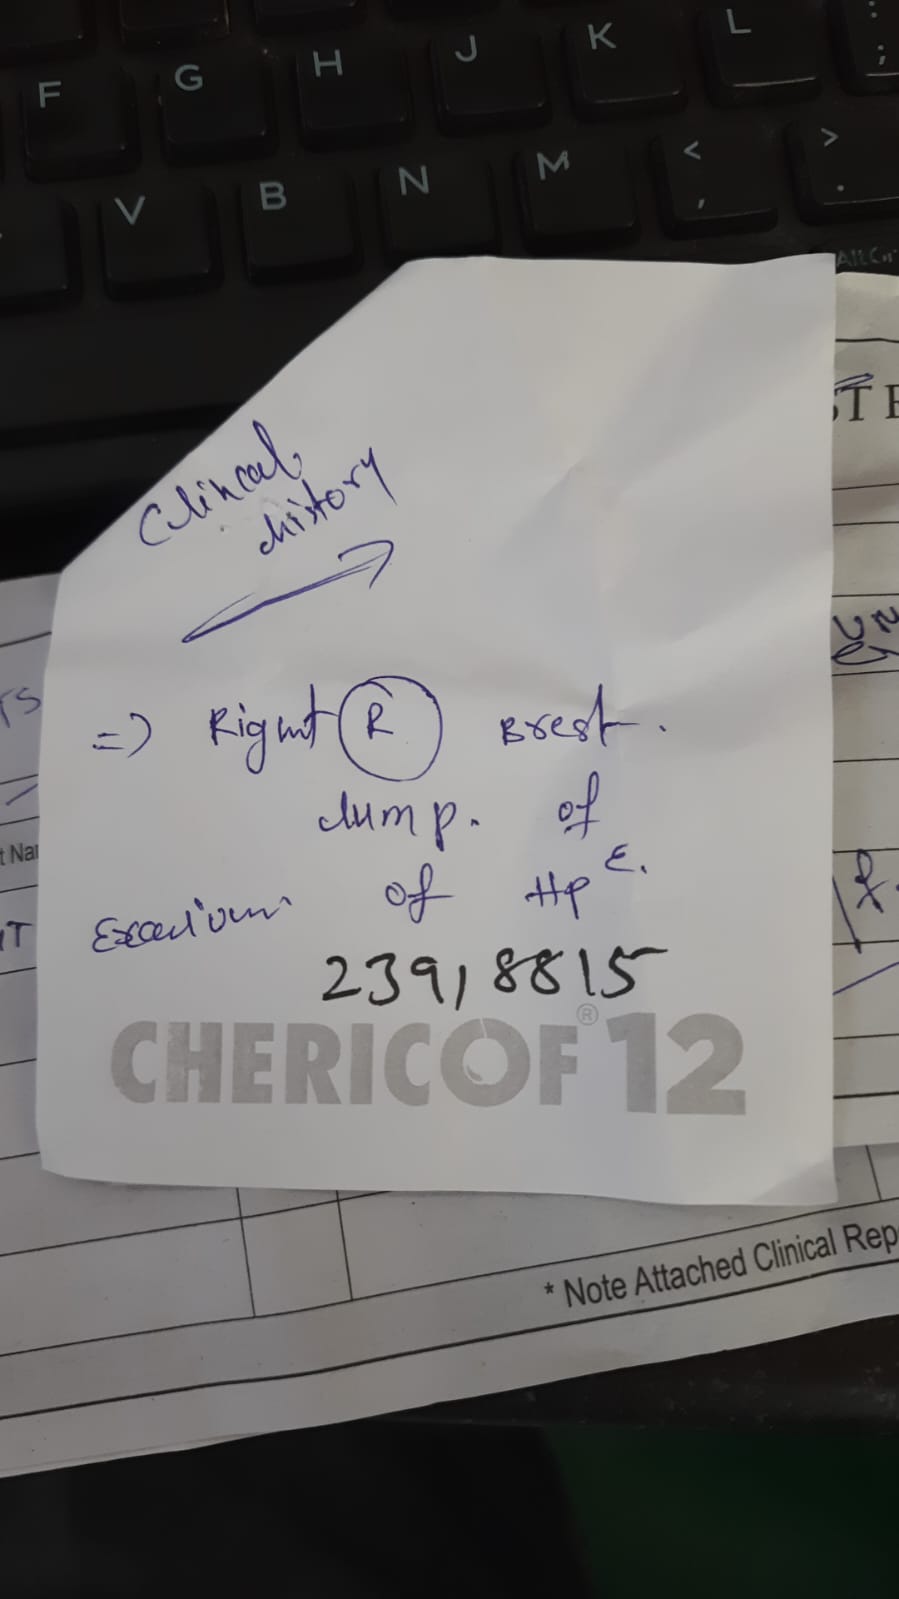 F G H J K L : ;
V B N M < , > .
Clincal
history
=> Right R Brest.
lump. of
of HpE.
23918815
CHERICOF® 12
* Note Attached Clinical Rep